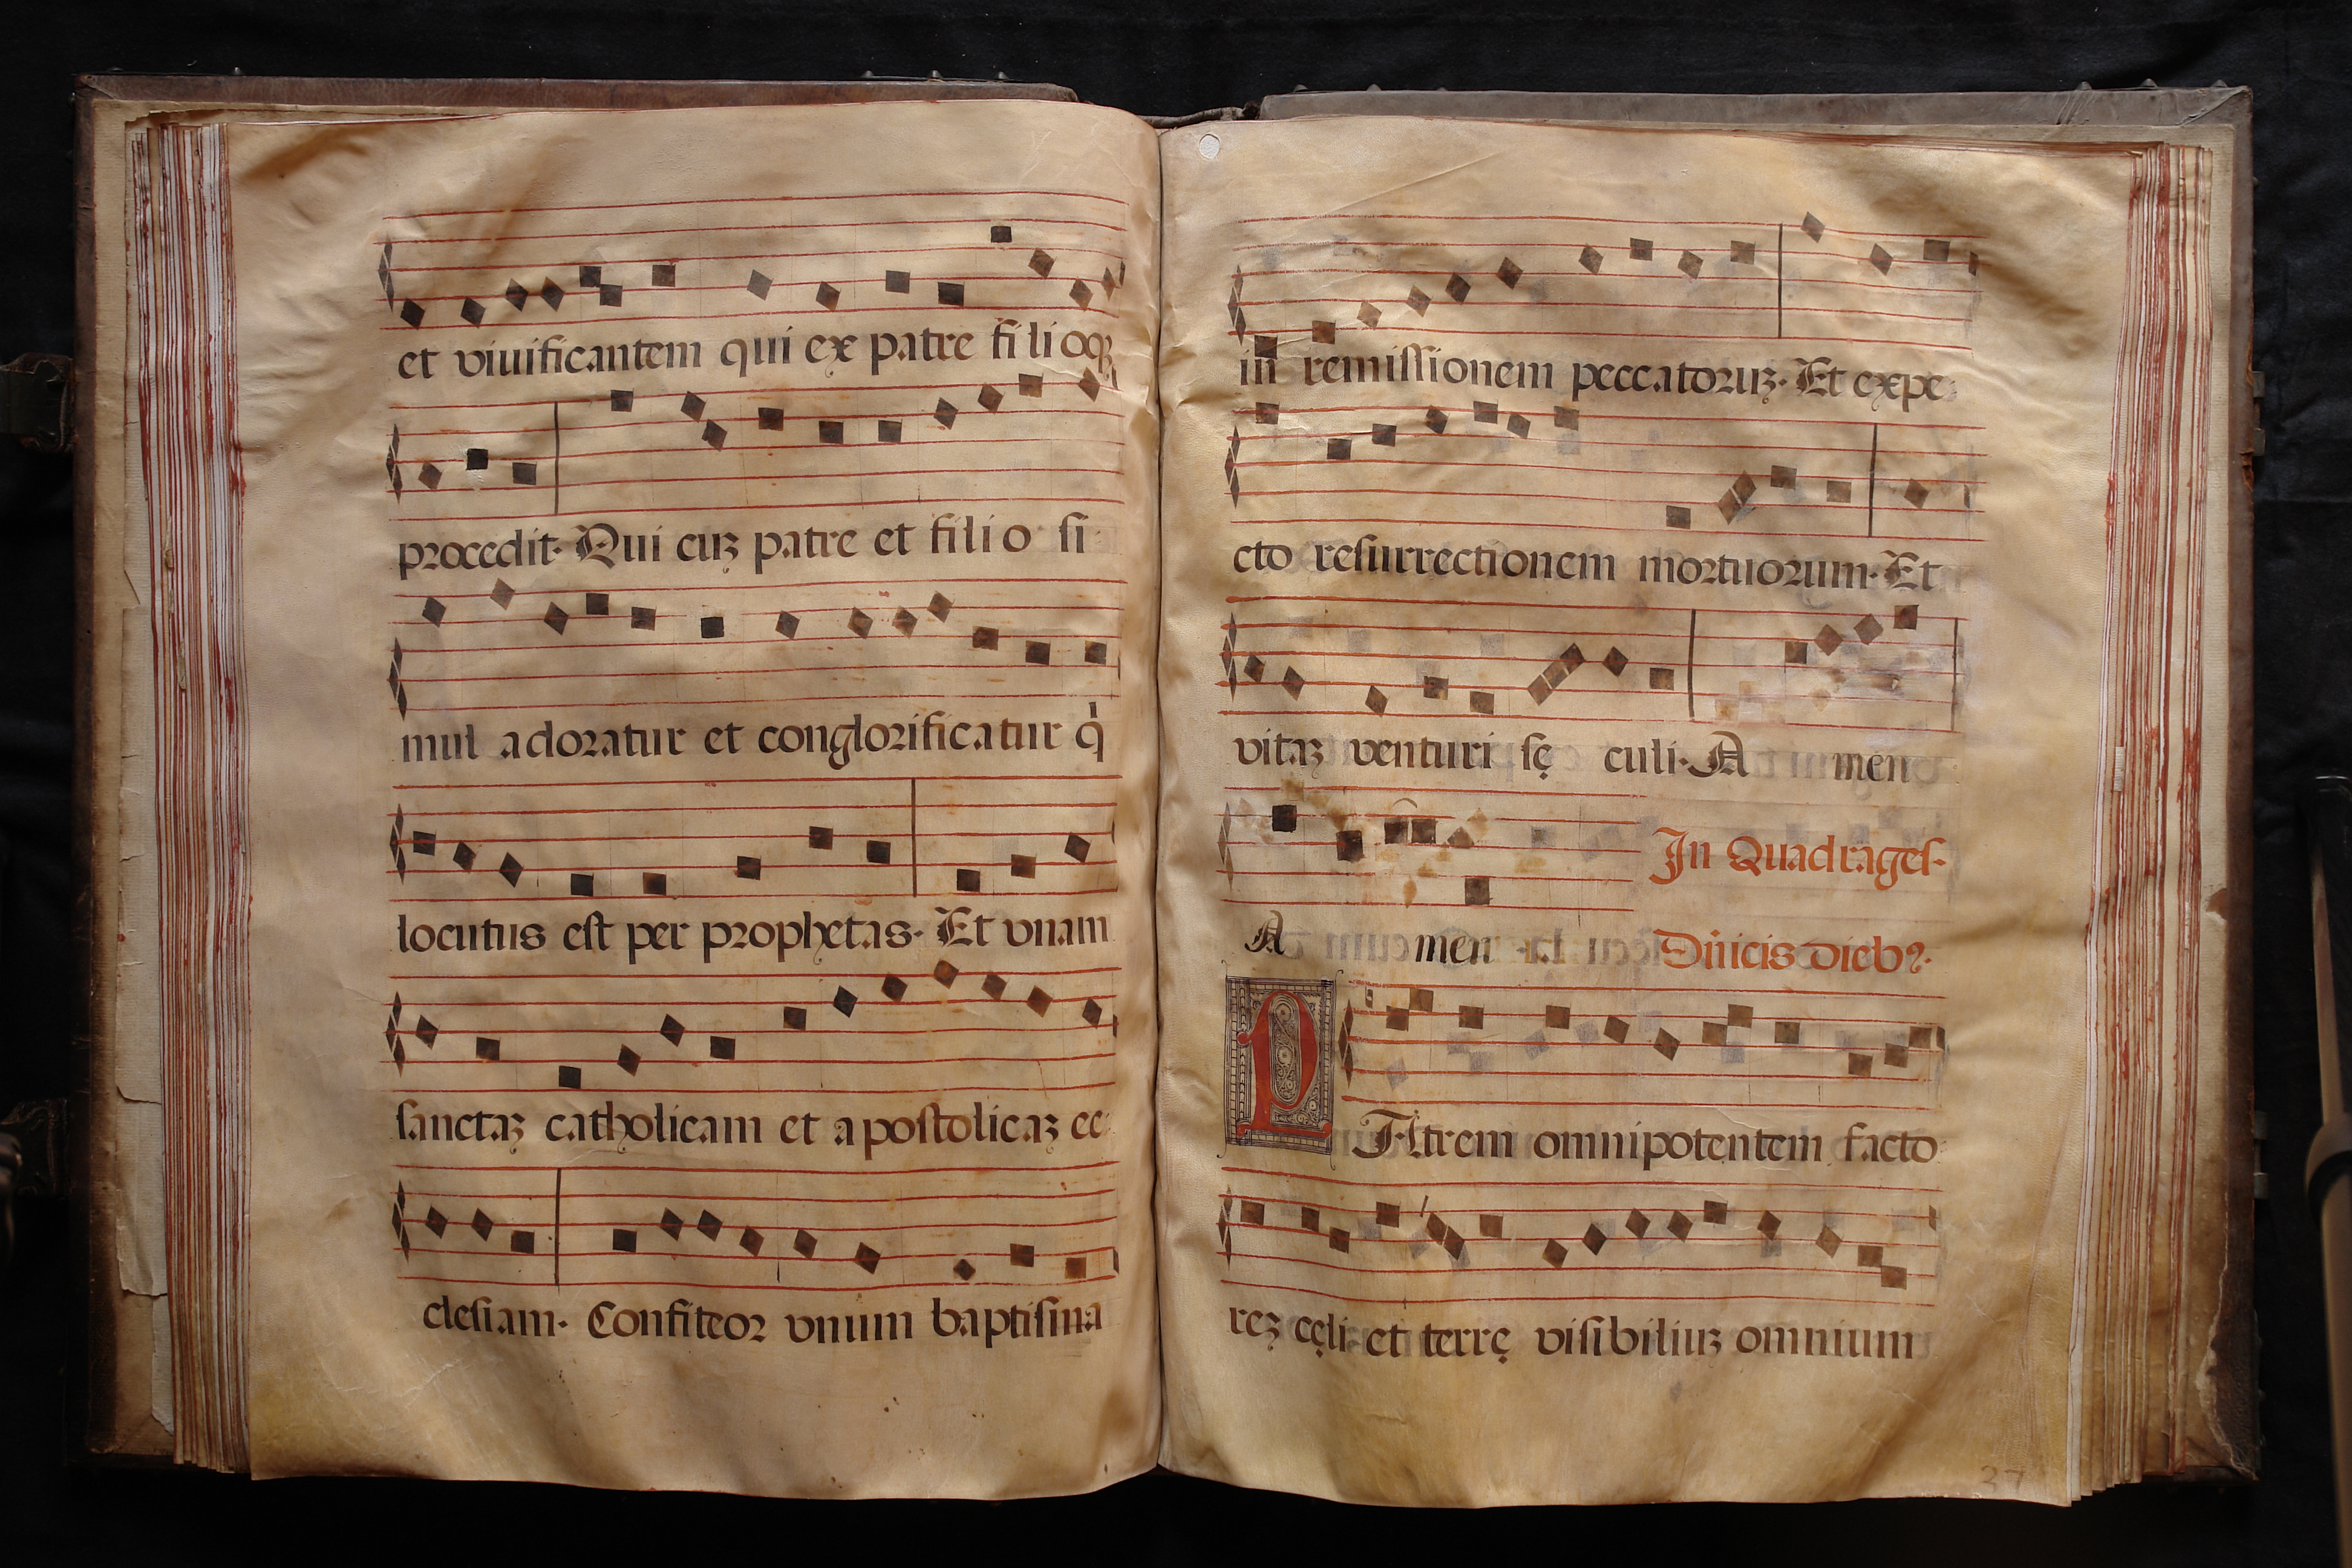 et viuificantem qui ex patre filioqꝫ
procedit· Qui cuꝫ patre et filio si
mul adoratur et conglorificatur q̇
locutus est per prophetas· Et vnam
sanctaꝫ catholicam et apostolicaꝫ ec
clesiam· Confiteor vnum baptisma
in remissionem peccatoruꝫ· Et expe
cto resurrectionem mortuorum· Et
vitaꝫ venturi sę culi· A men
In Quadrages·
A men
Dñicis dieb⁹·
PAtrem omnipotentem facto
reꝫ cęli et terrę visibiliuꝫ omnium
27